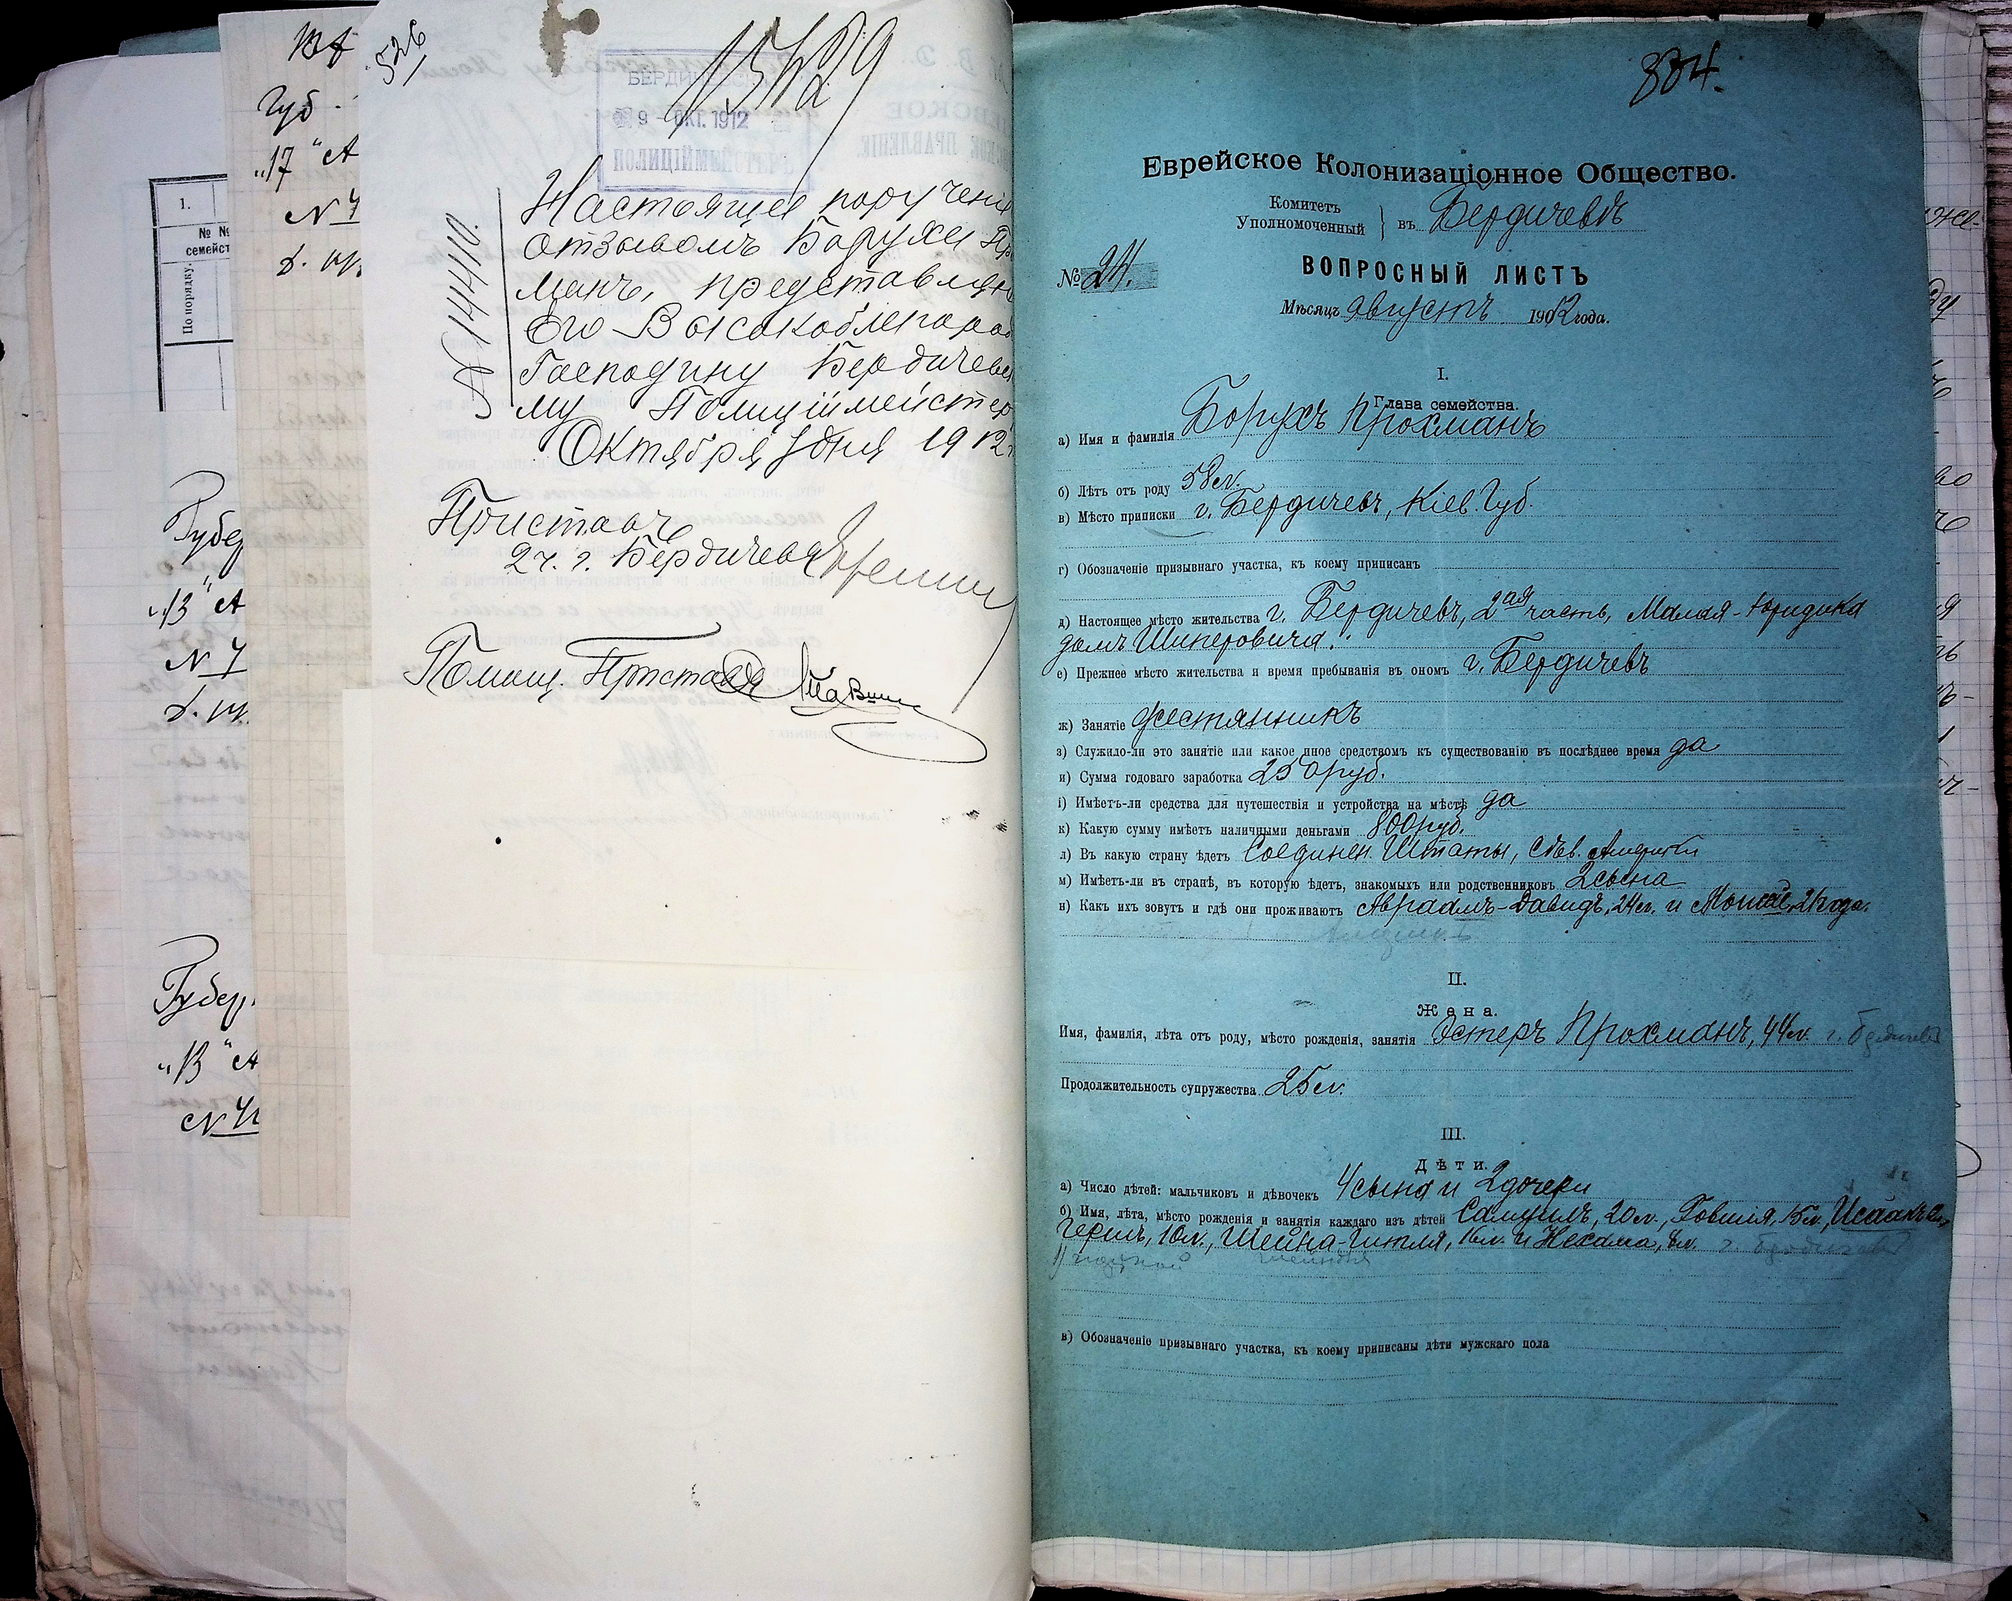 526
15489
БЕРДИЧЕВСК
9 - ОКТ. 1912
Настоящее поручені
отзывомъ Боруха Пр
манъ, представляю
Его Высокоблагород
Господину Бердичевск
му Полиціймейстер
Октября 9 дня 1912 г
№ 14410.
Приставъ
2 ч. г. Бердичева
Помощ. Пристава
Губ.
"17" А
№ 7
1.
№ №
семейст
По порядку.
Губер
"13" А
№ 7
Губер.
"13" А
334.
Еврейское Колонизаціонное Общество.
Комитетъ
Уполномоченный } въ Бердичевѣ
№ 24.
ВОПРОСНЫЙ ЛИСТЪ
Мѣсяцъ августъ 1912 года.
I.
Глава семейства.
а) Имя и фамилія Борухъ Прохманъ
б) Лѣтъ отъ роду 58 л.
в) Мѣсто приписки г. Бердичевъ, Кіев. Губ.
г) Обозначеніе призывнаго участка, къ коему приписанъ
д) Настоящее мѣсто жительства г. Бердичевъ, 2ая часть, Малая-Юридика
домъ
е) Прежнее мѣсто жительства и время пребыванія въ ономъ г. Бердичевъ
ж) Занятіе жестянникъ
з) Служило-ли это занятіе или какое иное средствомъ къ существованію въ послѣднее время да
и) Сумма годоваго заработка 250 руб.
і) Имѣетъ-ли средства для путешествія и устройства на мѣстѣ да
к) Какую сумму имѣетъ наличными деньгами 800 руб.
л) Въ какую страну ѣдетъ Соединен. Штаты, Сѣв. Америки
м) Имѣетъ-ли въ странѣ, въ которую ѣдетъ, знакомыхъ или родственниковъ 2 сына
н) Какъ ихъ зовутъ и гдѣ они проживаютъ Авраамъ-Давидъ, 24 л. и 21 года.
II.
Жена.
Имя, фамилія, лѣта отъ роду, мѣсто рожденія, занятія Эстеръ Прохманъ, 44 л. г. Бердичевъ
Продолжительность супружества 25 л.
III.
Дѣти.
а) Число дѣтей: мальчиковъ и дѣвочекъ 4 сына и 2 дочери
б) Имя, лѣта, мѣсто рожденія и занятія каждаго изъ дѣтей Самуилъ, 20 л., Говшія, 15 л., Исаакъ
10 л., Шейна-Гитля, 16 л. и Нехама, 8 л. г. Бердичевъ
в) Обозначеніе призывнаго участка, къ коему приписаны дѣти мужскаго пола